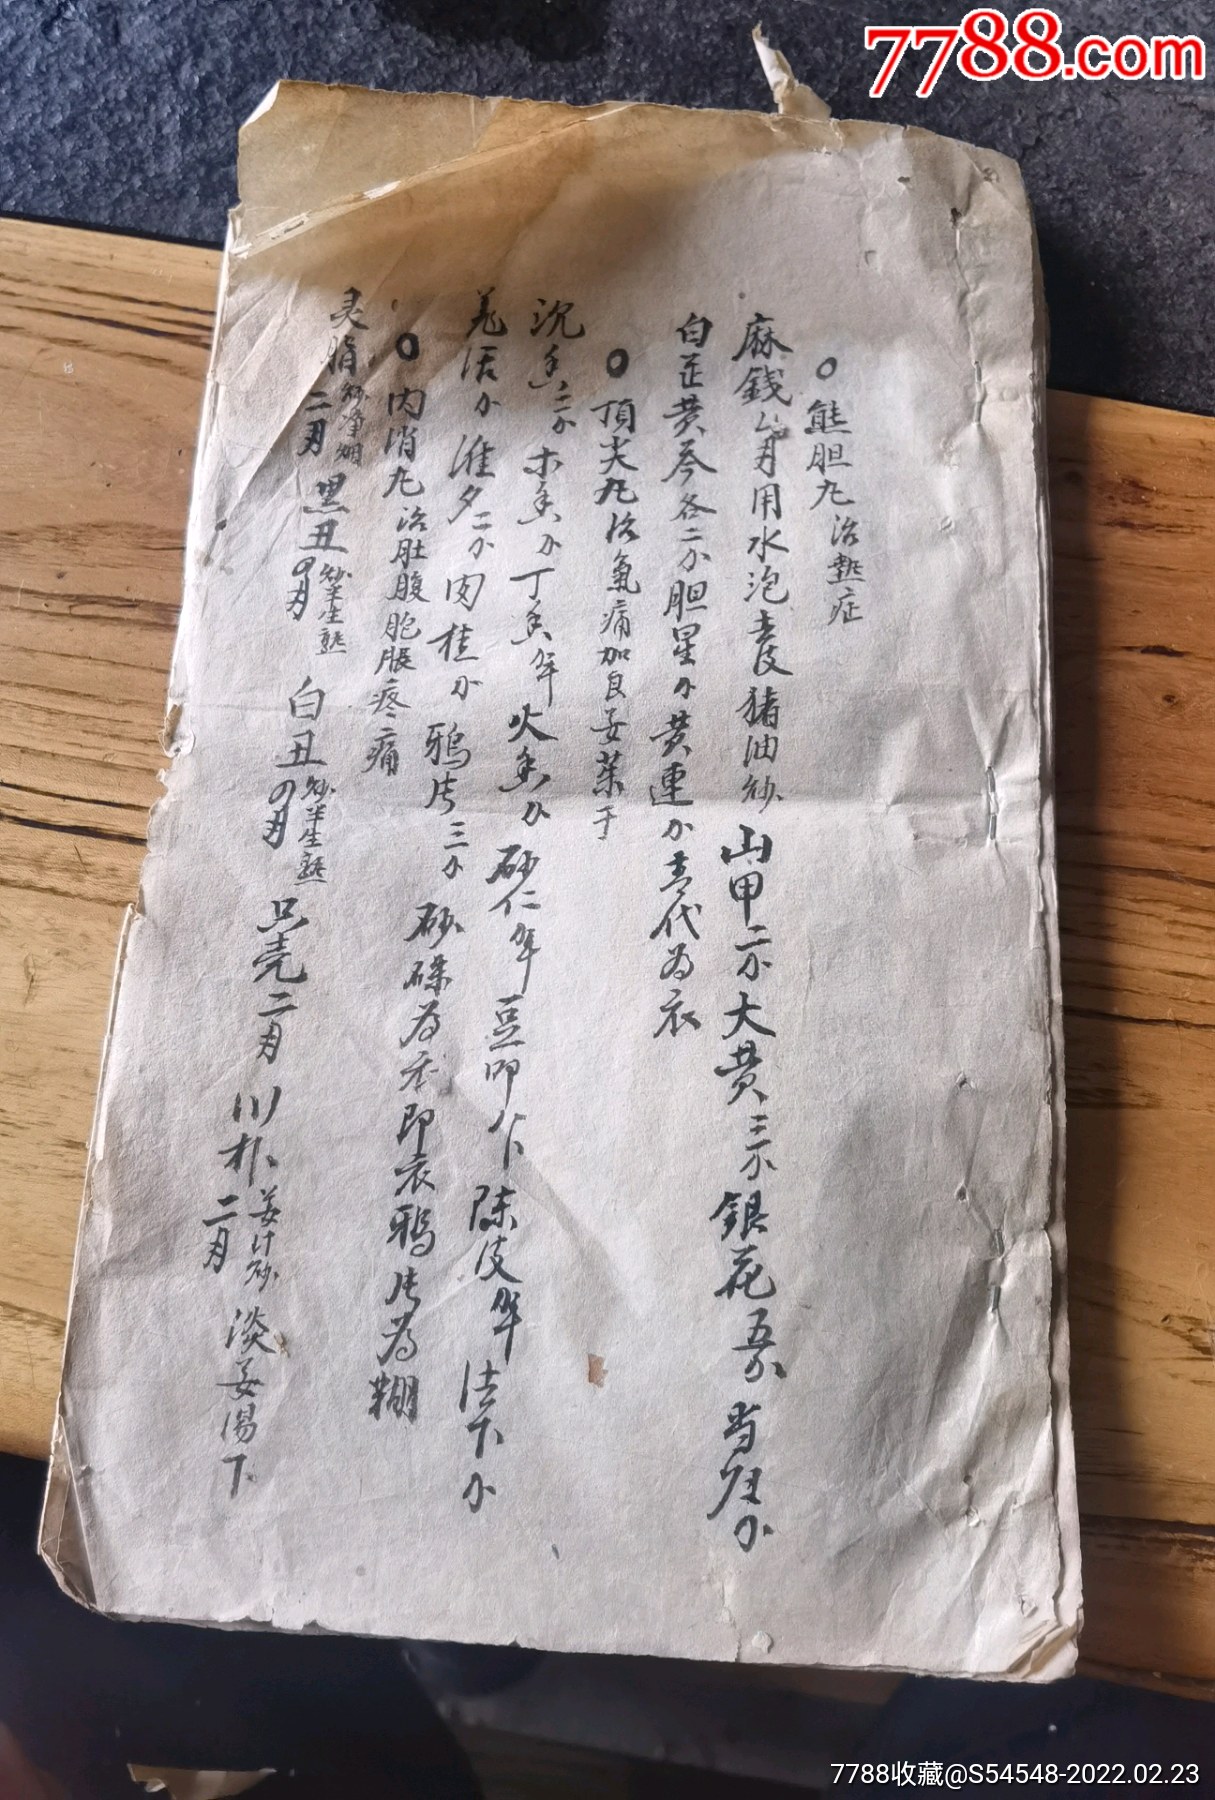 7788.com
○熊胆丸 治熱症
麻錢 用水泡去皮猪油炒 山甲二分大黄三分銀花五分当归分
白芷黄芩各二分胆星分黄連分青代为衣
○頂尖丸治氣痛加良姜茱于
沉香二分木香分丁香半火香分砂仁半豆叩 陈皮半法下分
羌活分淮夕二分肉桂分鴉片三分砂磔为衣即衣鴉片為糊
○内消丸治肚腹胞脹疼痛
灵脂炒净烟二月黑丑炒半生熟 白丑炒半生熟 只壳二月川朴姜汁炒二月淡姜湯下
7788收藏@S54548-2022.02.23